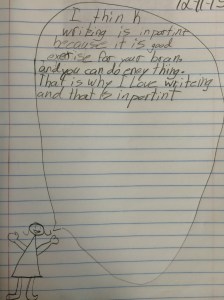 12-11-13
I think
writing is inportint
because it is good
exersise for your bran.
and you can do eney thing.
That is why I love writeing
and that is inportint